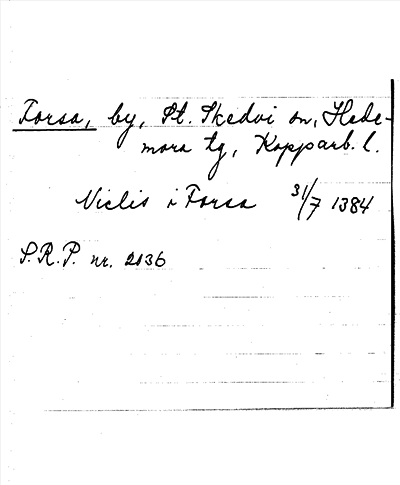 Forsa, by, St. Skedvi sn, Hede-
mora tg, Kopparb. l.
Niclis i Forsa 31/7 1384
S.R.P. nr. 2136